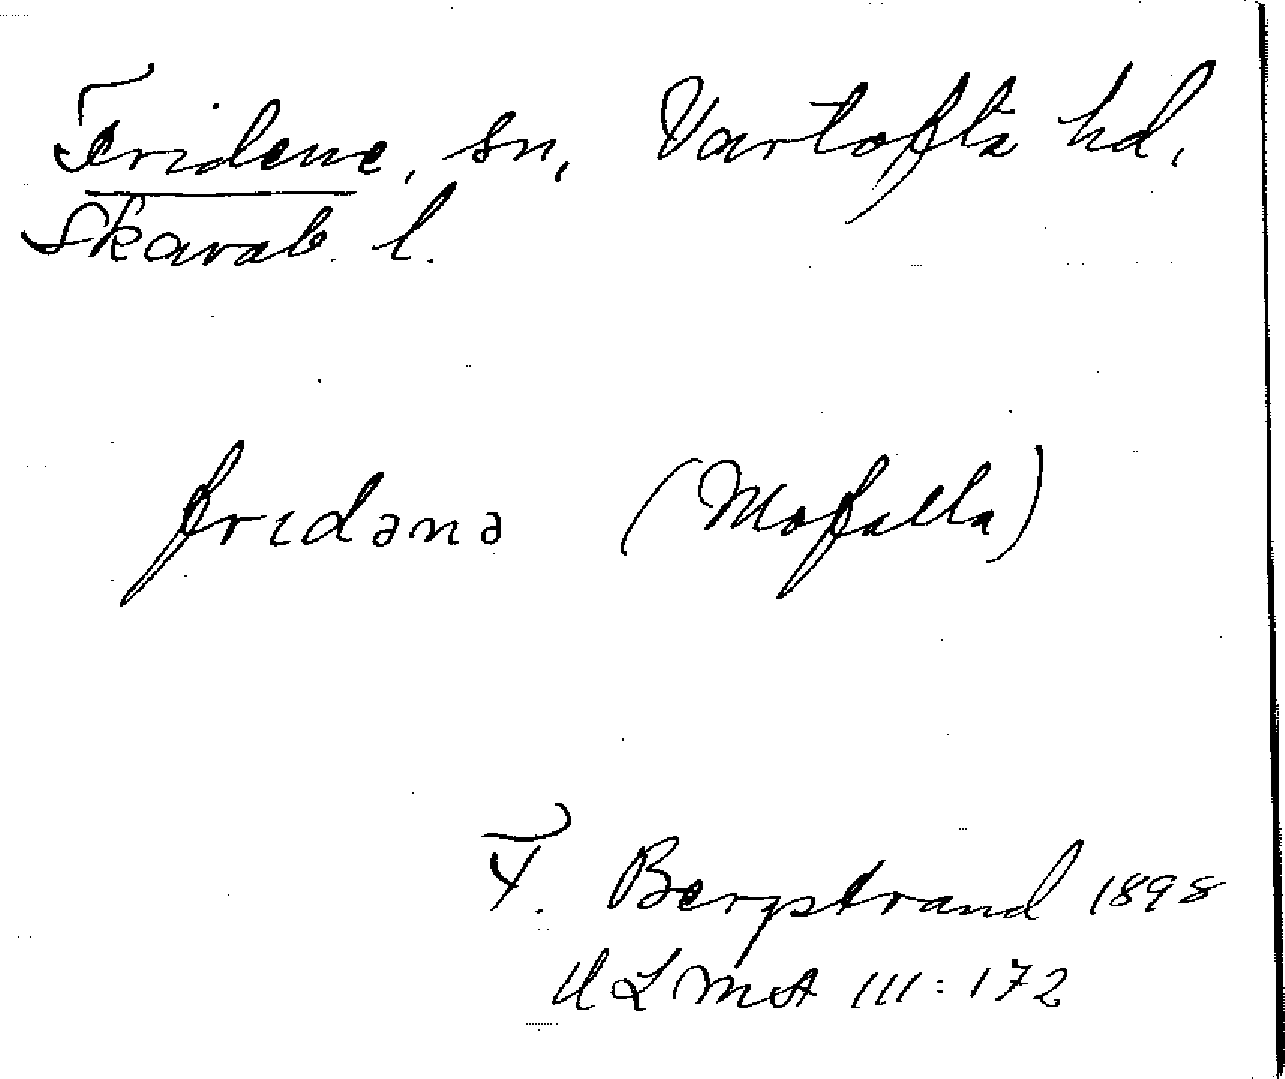 Fridene, sn, Vartofta hd,
Skarab. l.
fridənə (Mofalla)
F. Bergstrand 1898
ULMA III:172